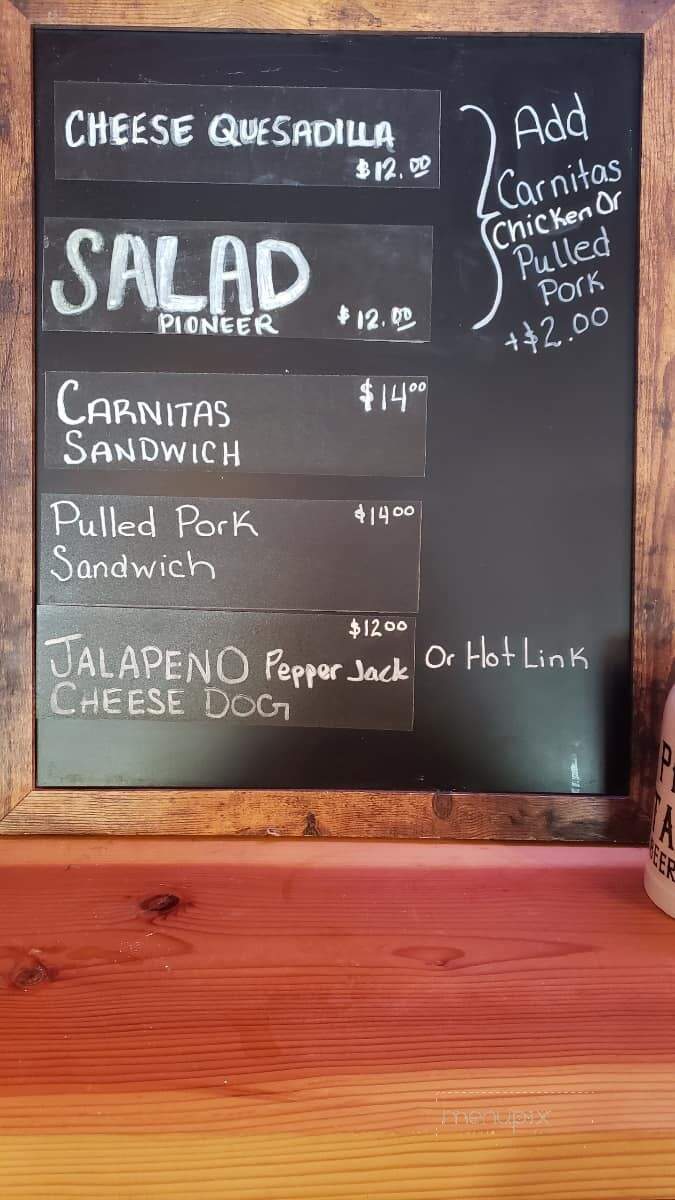 CHEESE QUESADILLA
$12.00
SALAD
PIONEER $12.00
Add
Carnitas
Chicken Or
Pulled
Pork
+$2.00
CARNITAS $1400
SANDWICH
Pulled Pork $1400
Sandwich
$1200
JALAPENO Pepper Jack Or Hot Link
CHEESE DOG
menupix